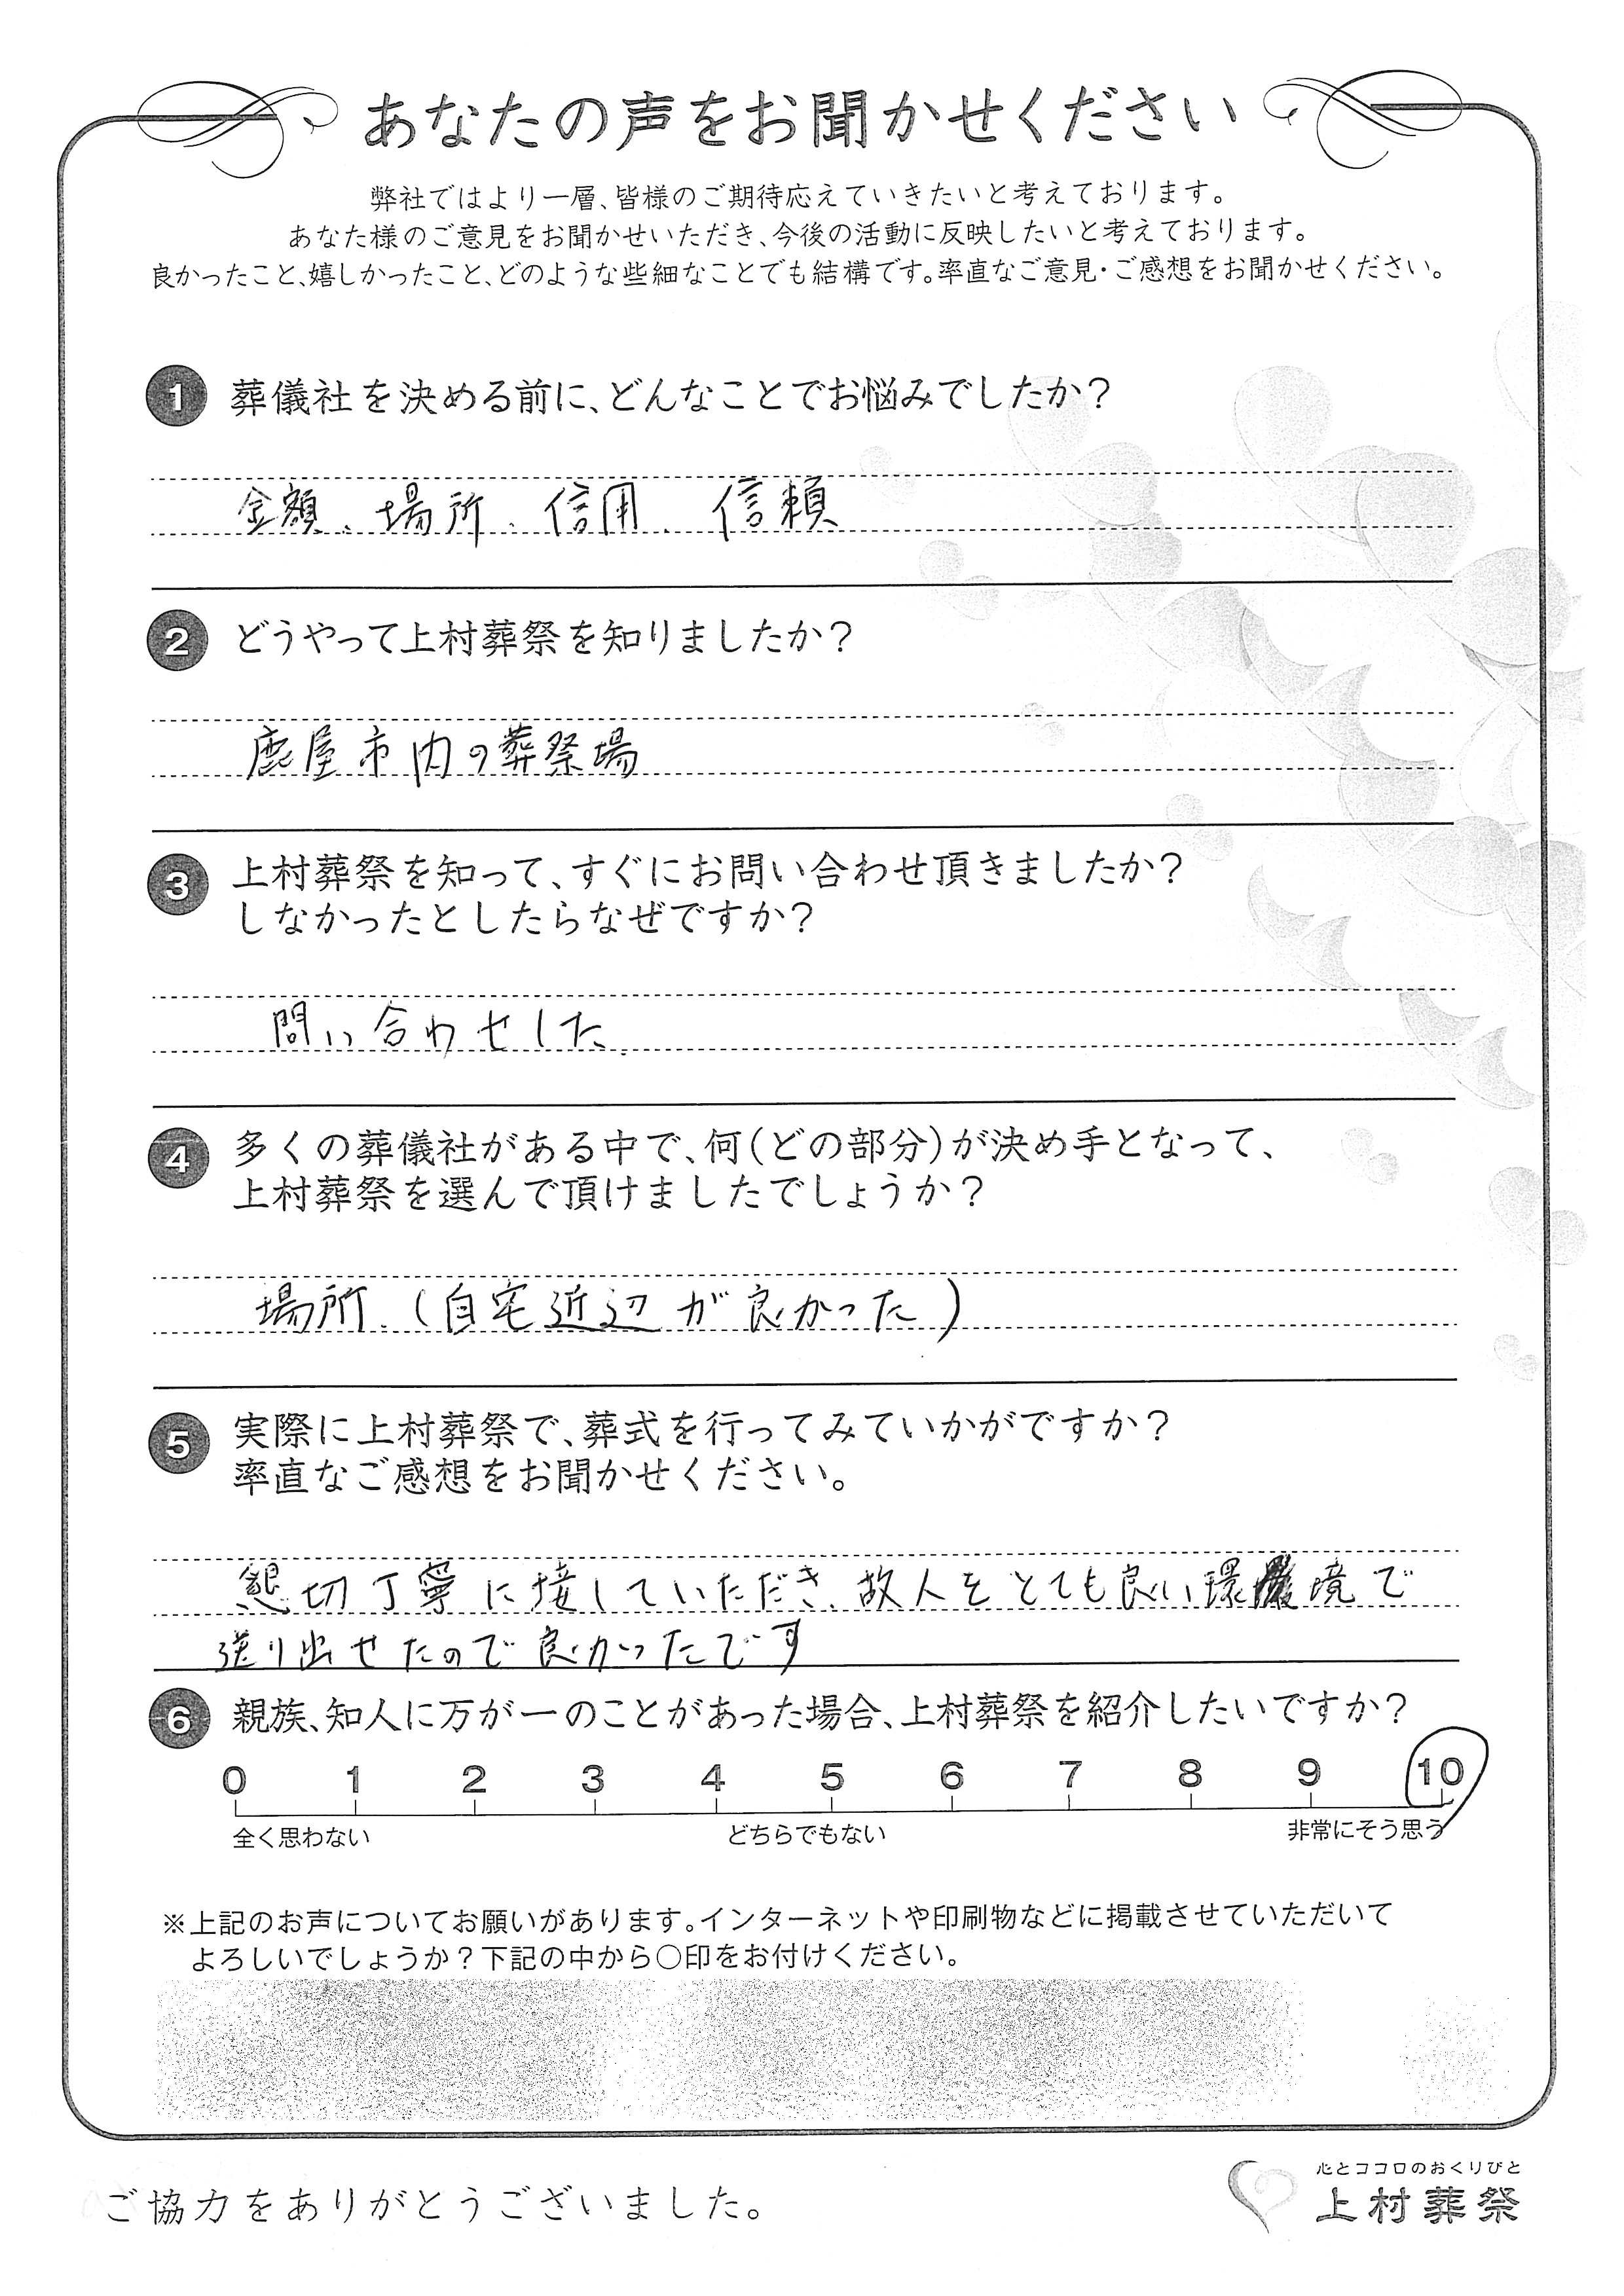 あなたの声をお聞かせください
弊社ではより一層、皆様のご期待応えていきたいと考えております。
あなた様のご意見をお聞かせいただき、今後の活動に反映したいと考えております。
良かったこと、嬉しかったこと、どのような些細なことでも結構です。率直なご意見・ご感想をお聞かせください。
1 葬儀社を決める前に、どんなことでお悩みでしたか？
金額、場所、信用、信頼
2 どうやって上村葬祭を知りましたか？
鹿屋市内の葬祭場
3 上村葬祭を知って、すぐにお問い合わせ頂きましたか？
しなかったとしたらなぜですか？
問い合わせした。
4 多くの葬儀社がある中で、何(どの部分)が決め手となって、
上村葬祭を選んで頂けましたでしょうか？
場所。(自宅近辺が良かった)
5 実際に上村葬祭で、葬式を行ってみていかがですか？
率直なご感想をお聞かせください。
懇切丁寧に接していただき、故人をとても良い環境で
送り出せたので良かったです
6 親族、知人に万が一のことがあった場合、上村葬祭を紹介したいですか？
0 1 2 3 4 5 6 7 8 9 10
全く思わない どちらでもない 非常にそう思う
※上記のお声についてお願いがあります。インターネットや印刷物などに掲載させていただいて
よろしいでしょうか？下記の中から○印をお付けください。
ご協力をありがとうございました。
心とココロのおくりびと
上村葬祭